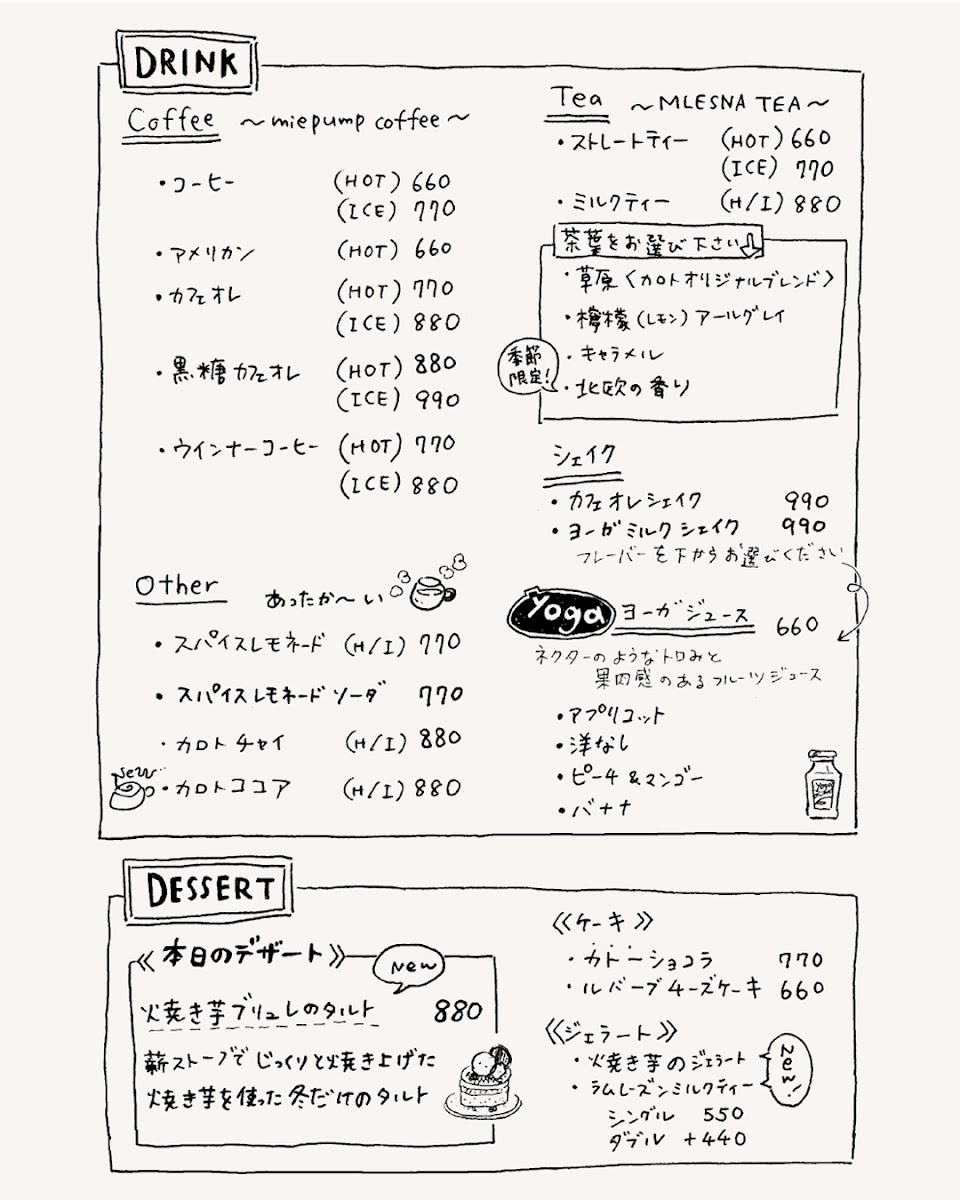 DRINK
Coffee ～miepump coffee～
・コーヒー (HOT) 660
(ICE) 770
・アメリカン (HOT) 660
・カフェオレ (HOT) 770
(ICE) 880
・黒糖カフェオレ (HOT) 880
(ICE) 990
・ウインナーコーヒー (HOT) 770
(ICE) 880
Other あったか〜い
・スパイスレモネード (H/I) 770
・スパイスレモネードソーダ 770
・カロトチャイ (H/I) 880
New
・カロトココア (H/I) 880
Tea ～MLESNA TEA～
・ストレートティー (HOT) 660
(ICE) 770
・ミルクティー (H/I) 880
茶葉をお選び下さい
・草原〈カロトオリジナルブレンド〉
・檸檬(レモン)アールグレイ
・キャラメル
季節
限定!
・北欧の香り
シェイク
・カフェオレシェイク 990
・ヨーガミルクシェイク 990
フレーバーを下からお選びください
Yoga ヨーガジュース 660
ネクターのようなトロみと
果肉感のあるフルーツジュース
・アプリコット
・洋なし
・ピーチ&マンゴー
・バナナ
DESSERT
《本日のデザート》 New
火焼き芋ブリュレのタルト 880
薪ストーブでじっくりと焼き上げた
焼き芋を使った冬だけのタルト
《ケーキ》
・カトーショコラ 770
・ルバーブチーズケーキ 660
《ジェラート》
・火焼き芋のジェラート
New!
・ラムレーズンミルクティー
シングル 550
ダブル +440